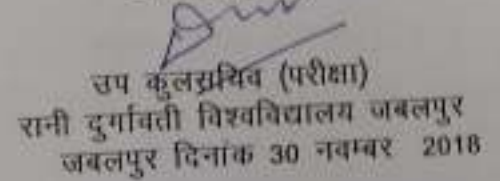 उप कुलसचिव (परीक्षा)
रानी दुर्गावती विश्वविद्यालय जबलपुर
जबलपुर दिनांक 30 नवम्बर 2018